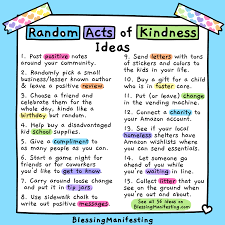 Random Acts of Kindness
Ideas
1. Post positive notes
around your community.
2. Randomly pick a small
business/lesser known author
& leave a positive review.
3. Choose a friend and
celebrate them for the
whole day, kinda like a
birthday but random.
4. Help buy a disadvantaged
kid school supplies.
5. Give a compliment to
as many people as you can.
6. Start a game night for
friends or for coworkers
you'd like to get to know.
7. Carry around loose change
and put it in tip jars.
8. Use sidewalk chalk to
write out positive messages.
9. Send letters with tons
of stickers and colors to
the kids in your life.
10. Buy a gift for a child
who is in foster care.
11. Put (or leave) change
in the vending machine.
12. Connect a charity to
your Amazon account.
13. See if your local
homeless shelters have
Amazon wishlists where you
can send essentials.
14. Let someone go
ahead of you while
you're waiting in line.
15. Collect litter that you
see on the ground when
you're out and about.
See all 50 ideas on
BlessingManifesting.com
BlessingManifesting